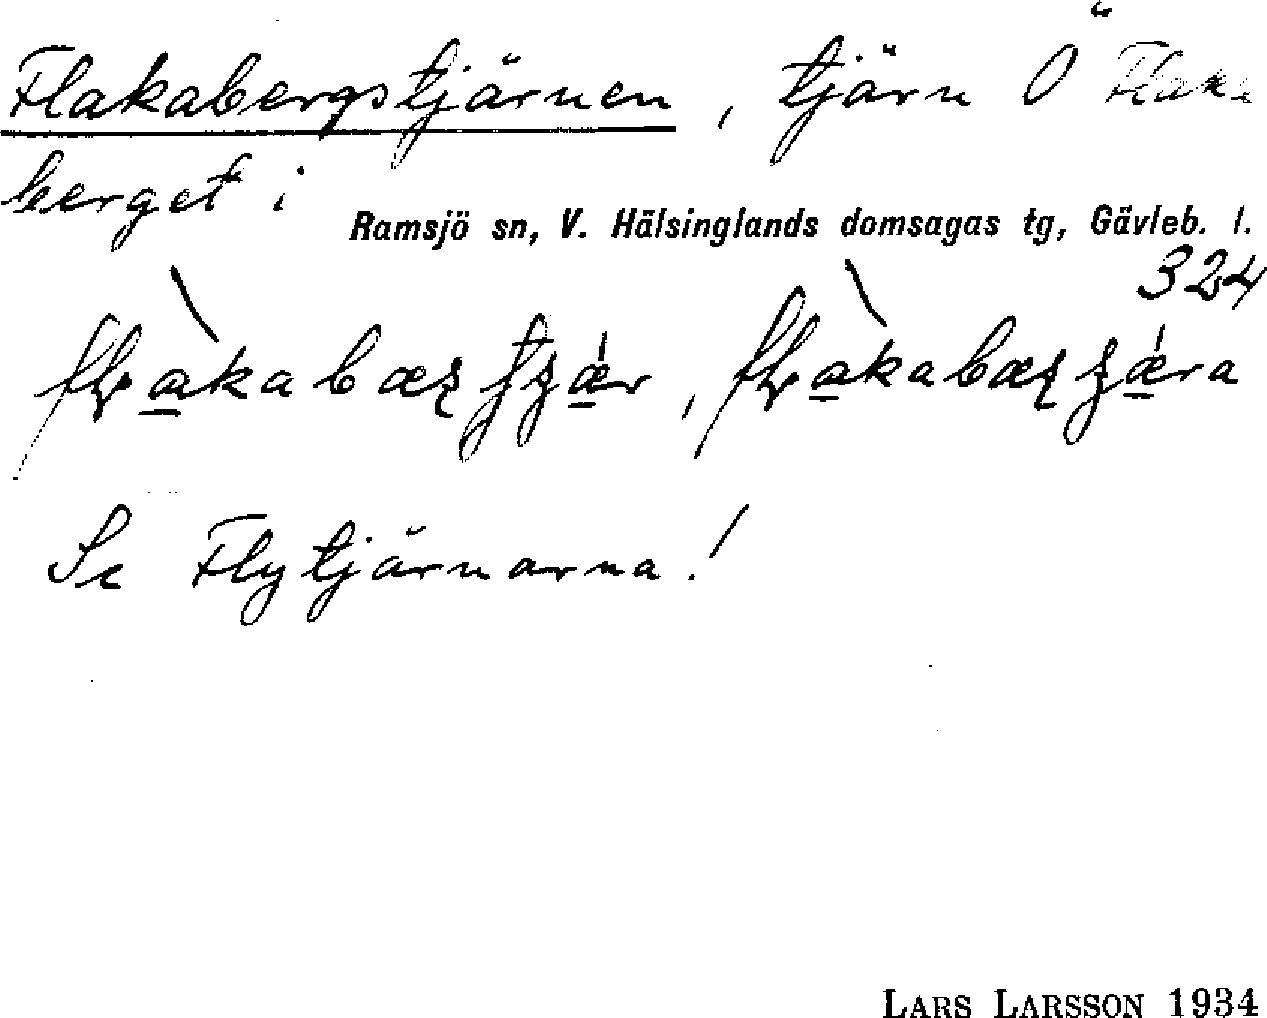 Flakabergstjärnen, tjärn Ö Flaka
berget i
Ramsjö sn, V. Hälsinglands domsagas tg, Gävleb. l.
324
Se Flytjärnarna!
LARS LARSSON 1934